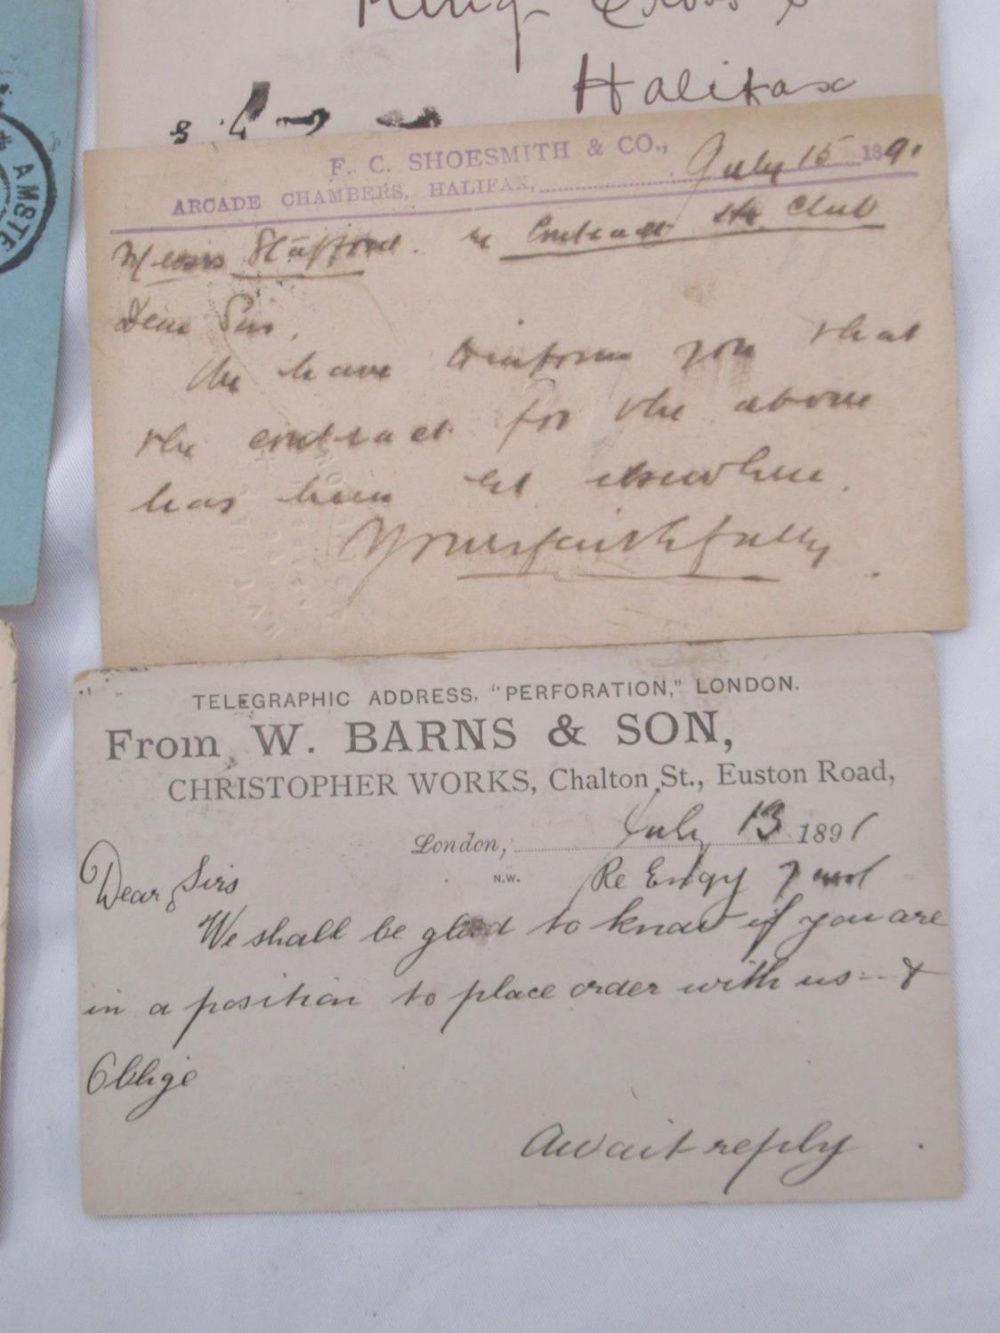 Halifax
AMSTE
F. C. SHOESMITH & CO.,
ARCADE CHAMBERS, HALIFAX, July 15 189
Messrs Stafford. Contract Club
Dear Sir,
We have to inform you that
the contract for the above
has been let elsewhere.
Yours faithfully
TELEGRAPHIC ADDRESS, "PERFORATION," LONDON.
From W. BARNS & SON,
CHRISTOPHER WORKS, Chalton St., Euston Road,
London, July 13 1891
N.W.
Dear Sirs Re Enqy
We shall be glad to know if you are
in a position to place order with us - &
Oblige
Await reply